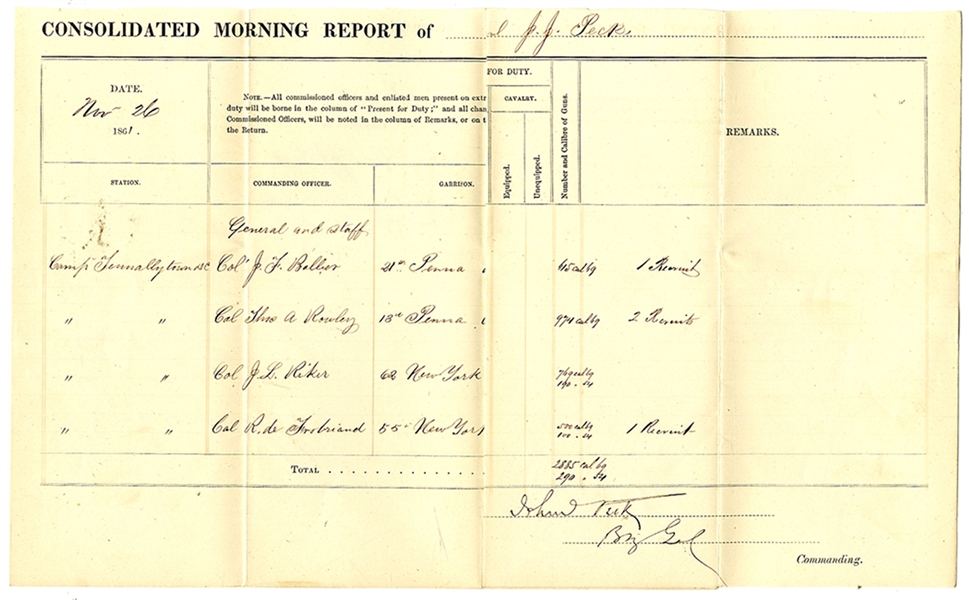 CONSOLIDATED MORNING REPORT of J. J. Peck.
DATE.
Nov 26
1861.
NOTE.—All commissioned officers and enlisted men present on extr
duty will be borne in the column of "Present for Duty;" and all chan
Commissioned Officers, will be noted in the column of Remarks, or on t
the Return.
FOR DUTY.
CAVALRY.
Equipped.
Unequipped.
Number and Calibre of Guns.
REMARKS.
STATION.
COMMANDING OFFICER.
GARRISON.
General and staff
Camp Tennallytown DC Col J. F. Ballier 21st Penna 1 Recruit
" " Col Thos A Rowley 13th Penna 974 cal 69 2 Recruits
" " Col J. L. Riker 62 New York 769 cal 69
190 " 54
" " Col R. de Trobriand 55th New York 500 cal 69 1 Recruit
100 " 54
TOTAL 2885 cal 69
290 " 54
John J Peck
Brig Genl
Commanding.